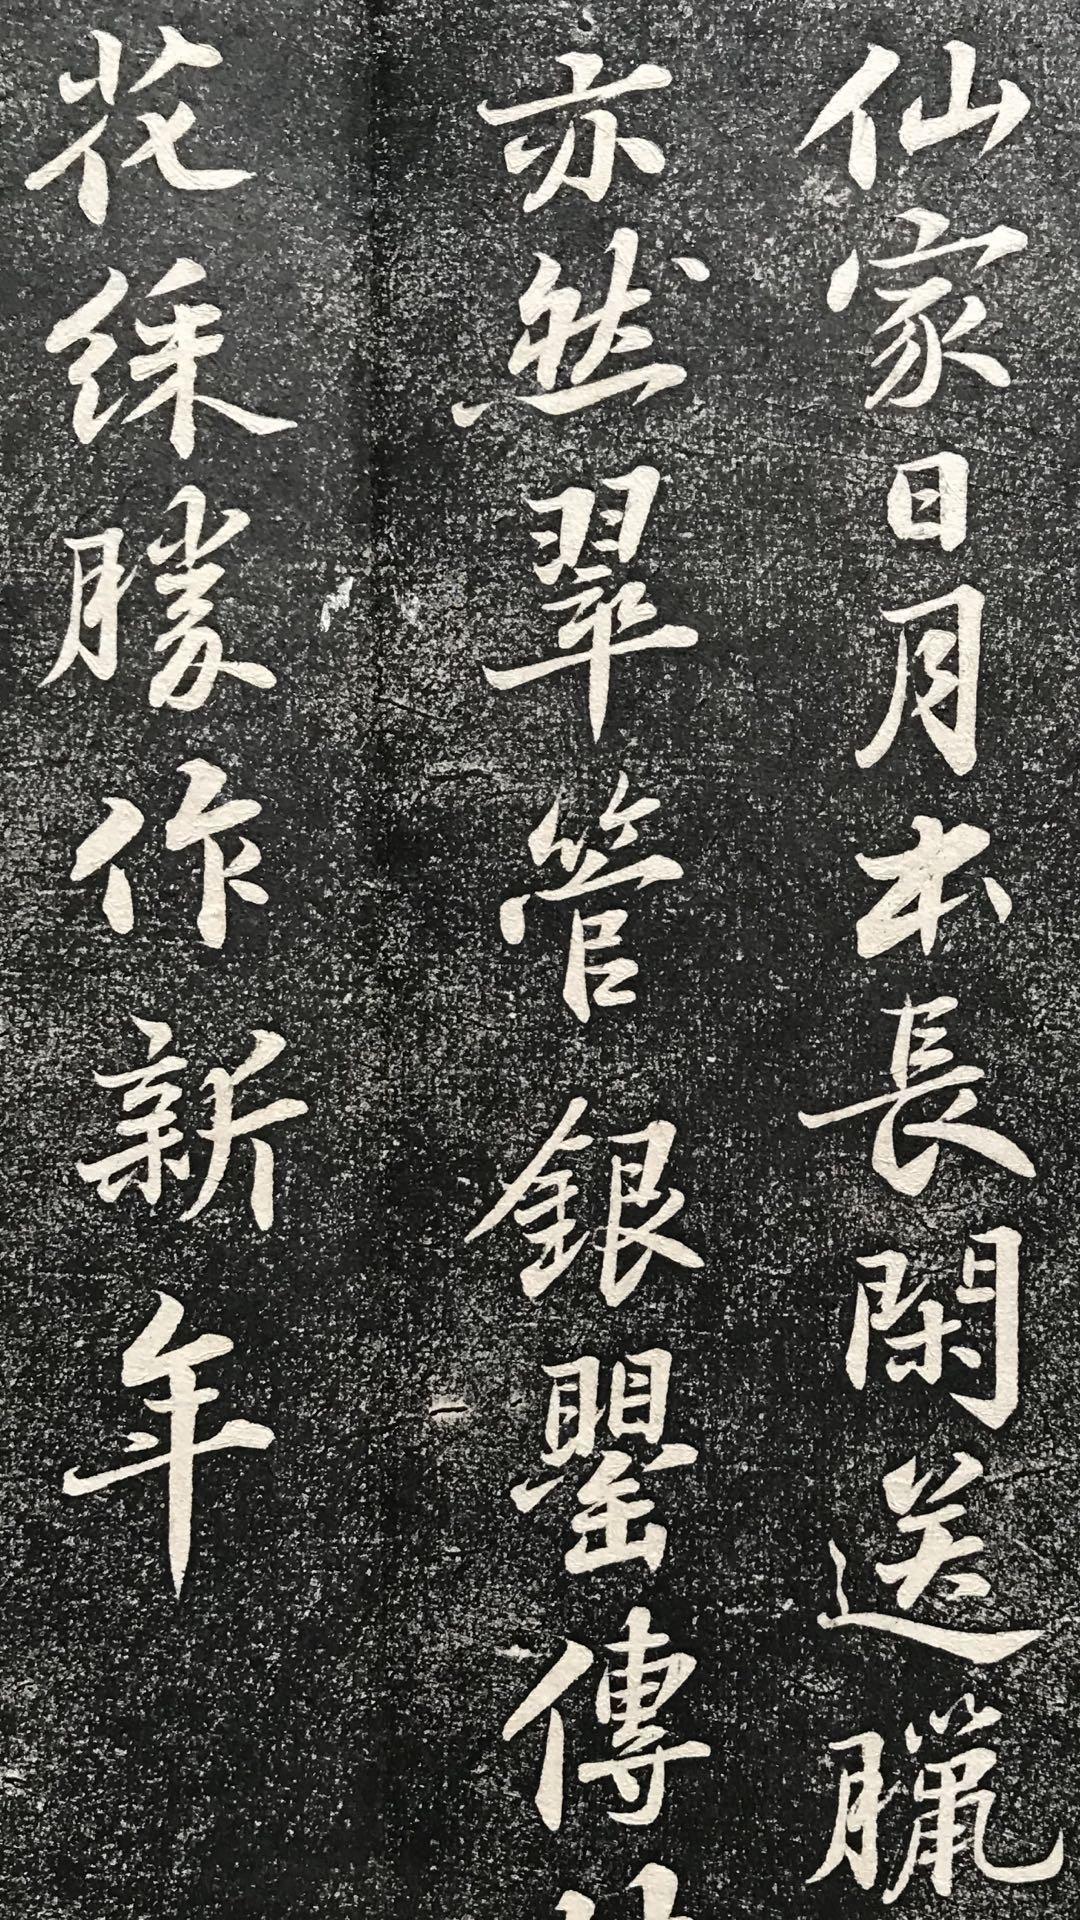 仙家日月本長閑送臘
亦然翠管銀罌傳
花綵勝作新年